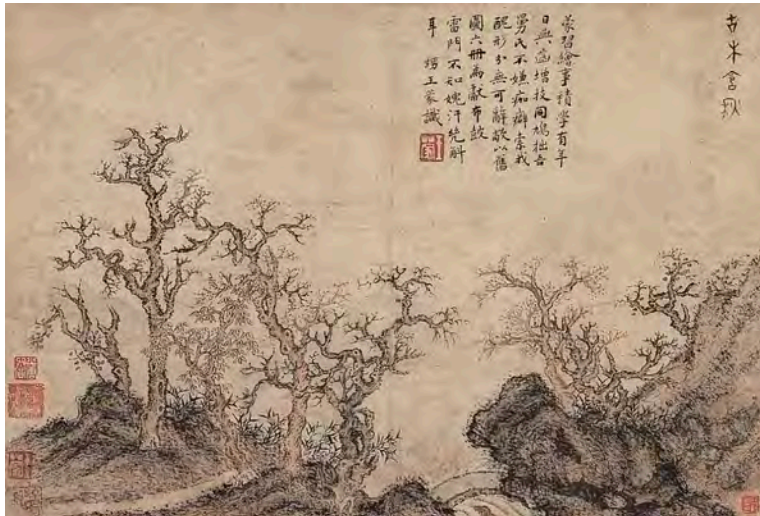 古木含秋
蒙習繪事積學有年
日無增技同鳩拙吾
舅氏不嫌痴癖索我
醜形分無可辭以舊
圖六冊為獻布鼓
雷門不知媿汗斛
耳 王蒙識